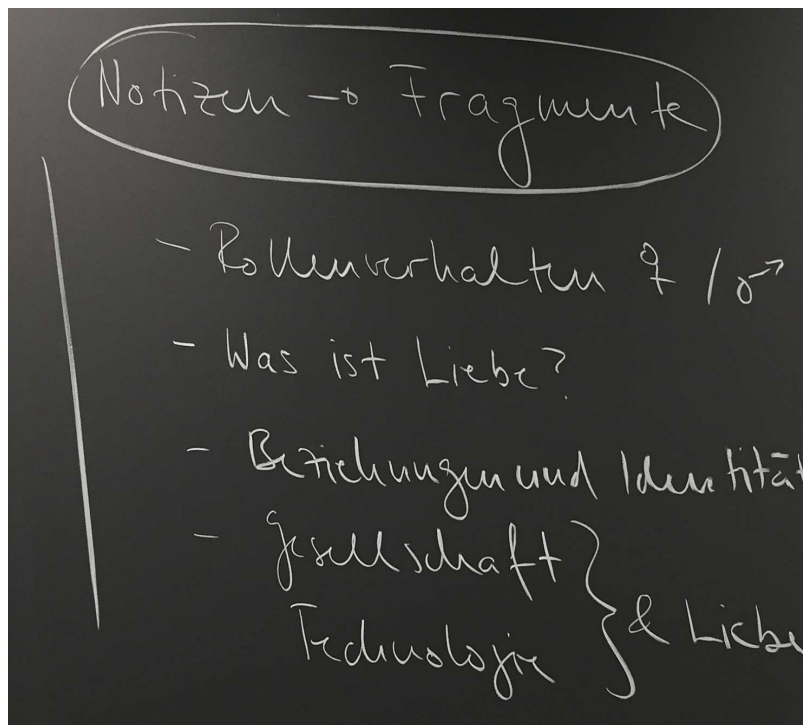 Notizen → Fragmente
- Rollenverhalten ♀ / ♂
- Was ist Liebe?
- Beziehungen und Identität
- Gesellschaft
Technologie } & Liebe